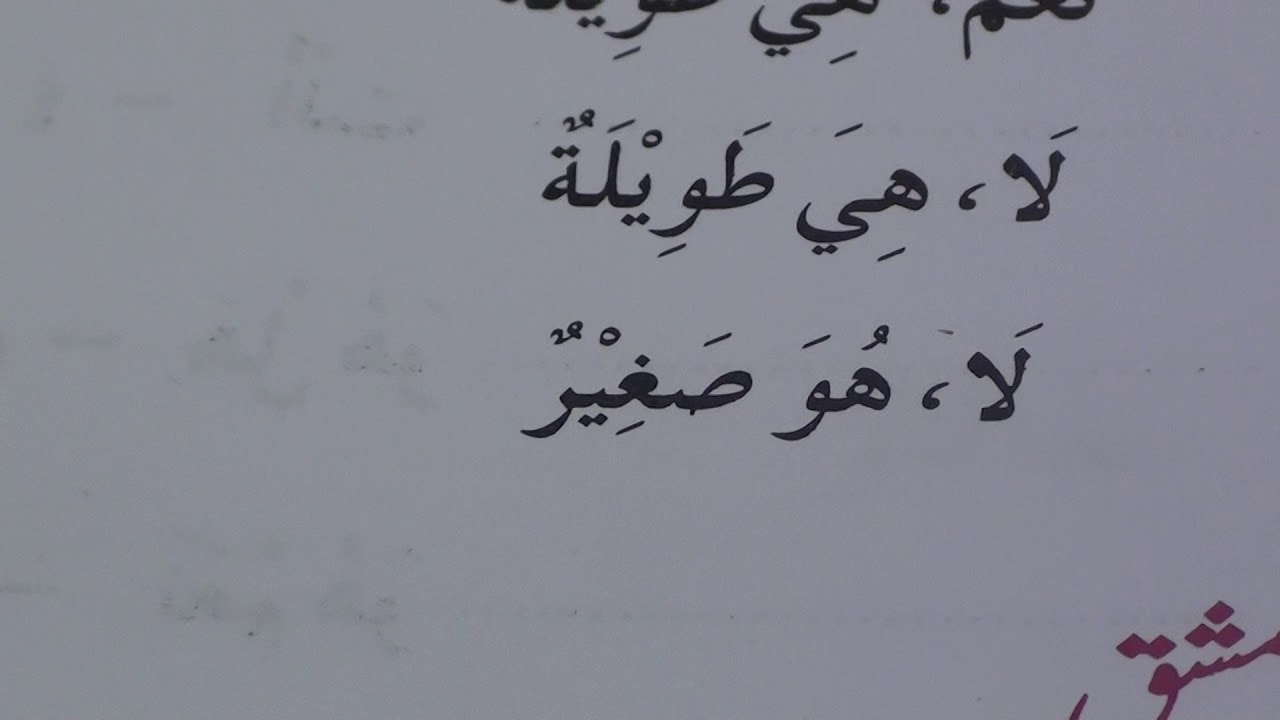 نعم، هِي طَوِيلَة
لَا، هِيَ طَوِيْلَةٌ
لَا، هُوَ صَغِيْرٌ
مشق